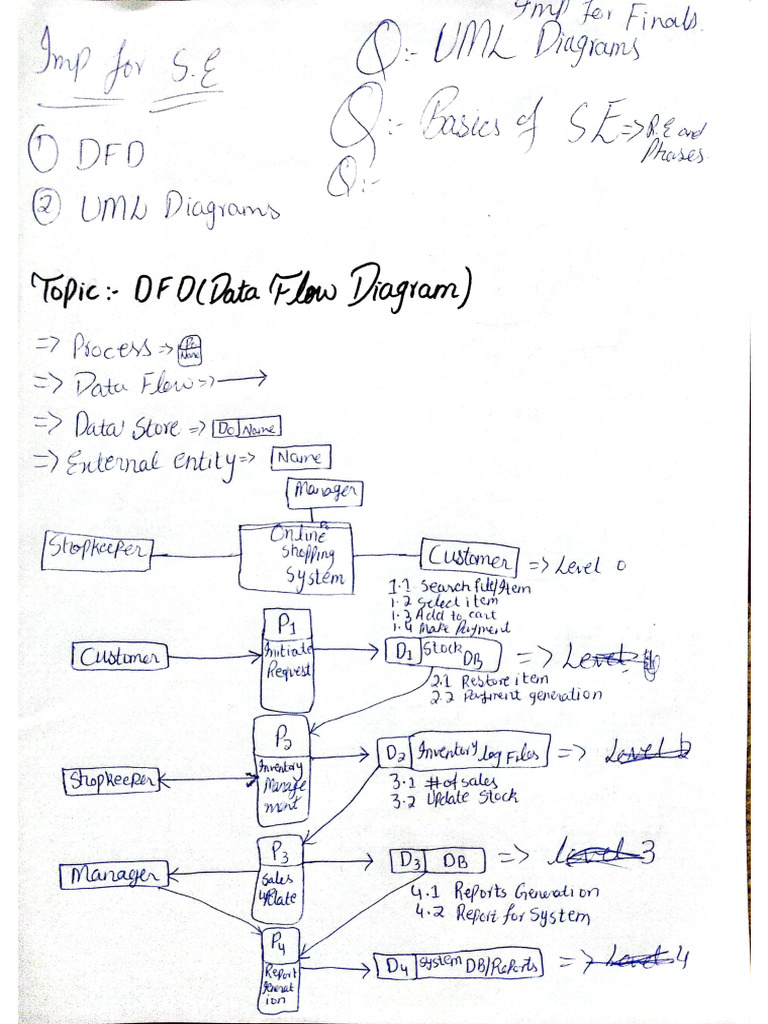 Imp for Finals.
Imp for S.E
Q:- UML Diagrams
Q:- Basics of SE => R.E and Phases.
Q:-
① DFD
② UML Diagrams
Topic:- DFD(Data Flow Diagram)
=> Process => Po Name
=> Data Flow =>
=> Data Store => Do Name
=> External entity => Name
Manager
Shopkeeper
Po
Online Shopping System
Customer => Level 0
1.1 Search file/Item
1.2 Select item
1.3 Add to cart
1.4 Make Payment
Customer
P1
Initiate Request
D1 Stock DB =>
2.1 Restore item
2.2 Payment generation
Shopkeeper
P2
Inventory Management
D2 Inventory Log Files =>
3.1 # of sales
3.2 Update Stock
Manager
P3
Sales Update
D3 DB => Level 3
4.1 Reports Generation
4.2 Report for System
P4
Report Generation
D4 System DB/Reports => Level 4